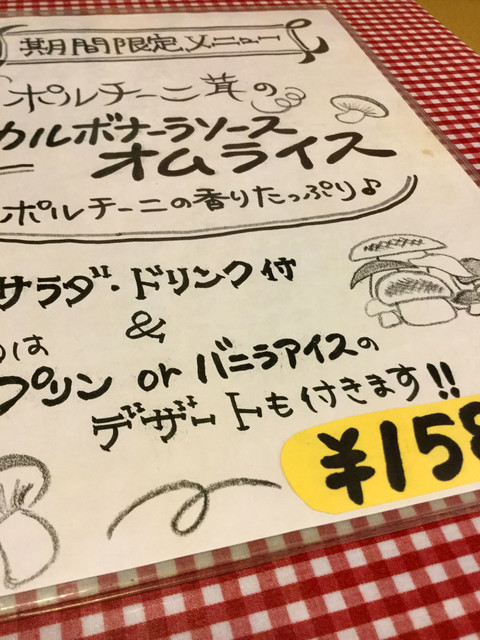 期間限定メニュー
ポルチーニ茸の
カルボナーラソース
オムライス
ポルチーニの香りたっぷり♪
サラダ・ドリンク付
&
は
プリン or バニラアイスの
デザートも付きます!!
¥158